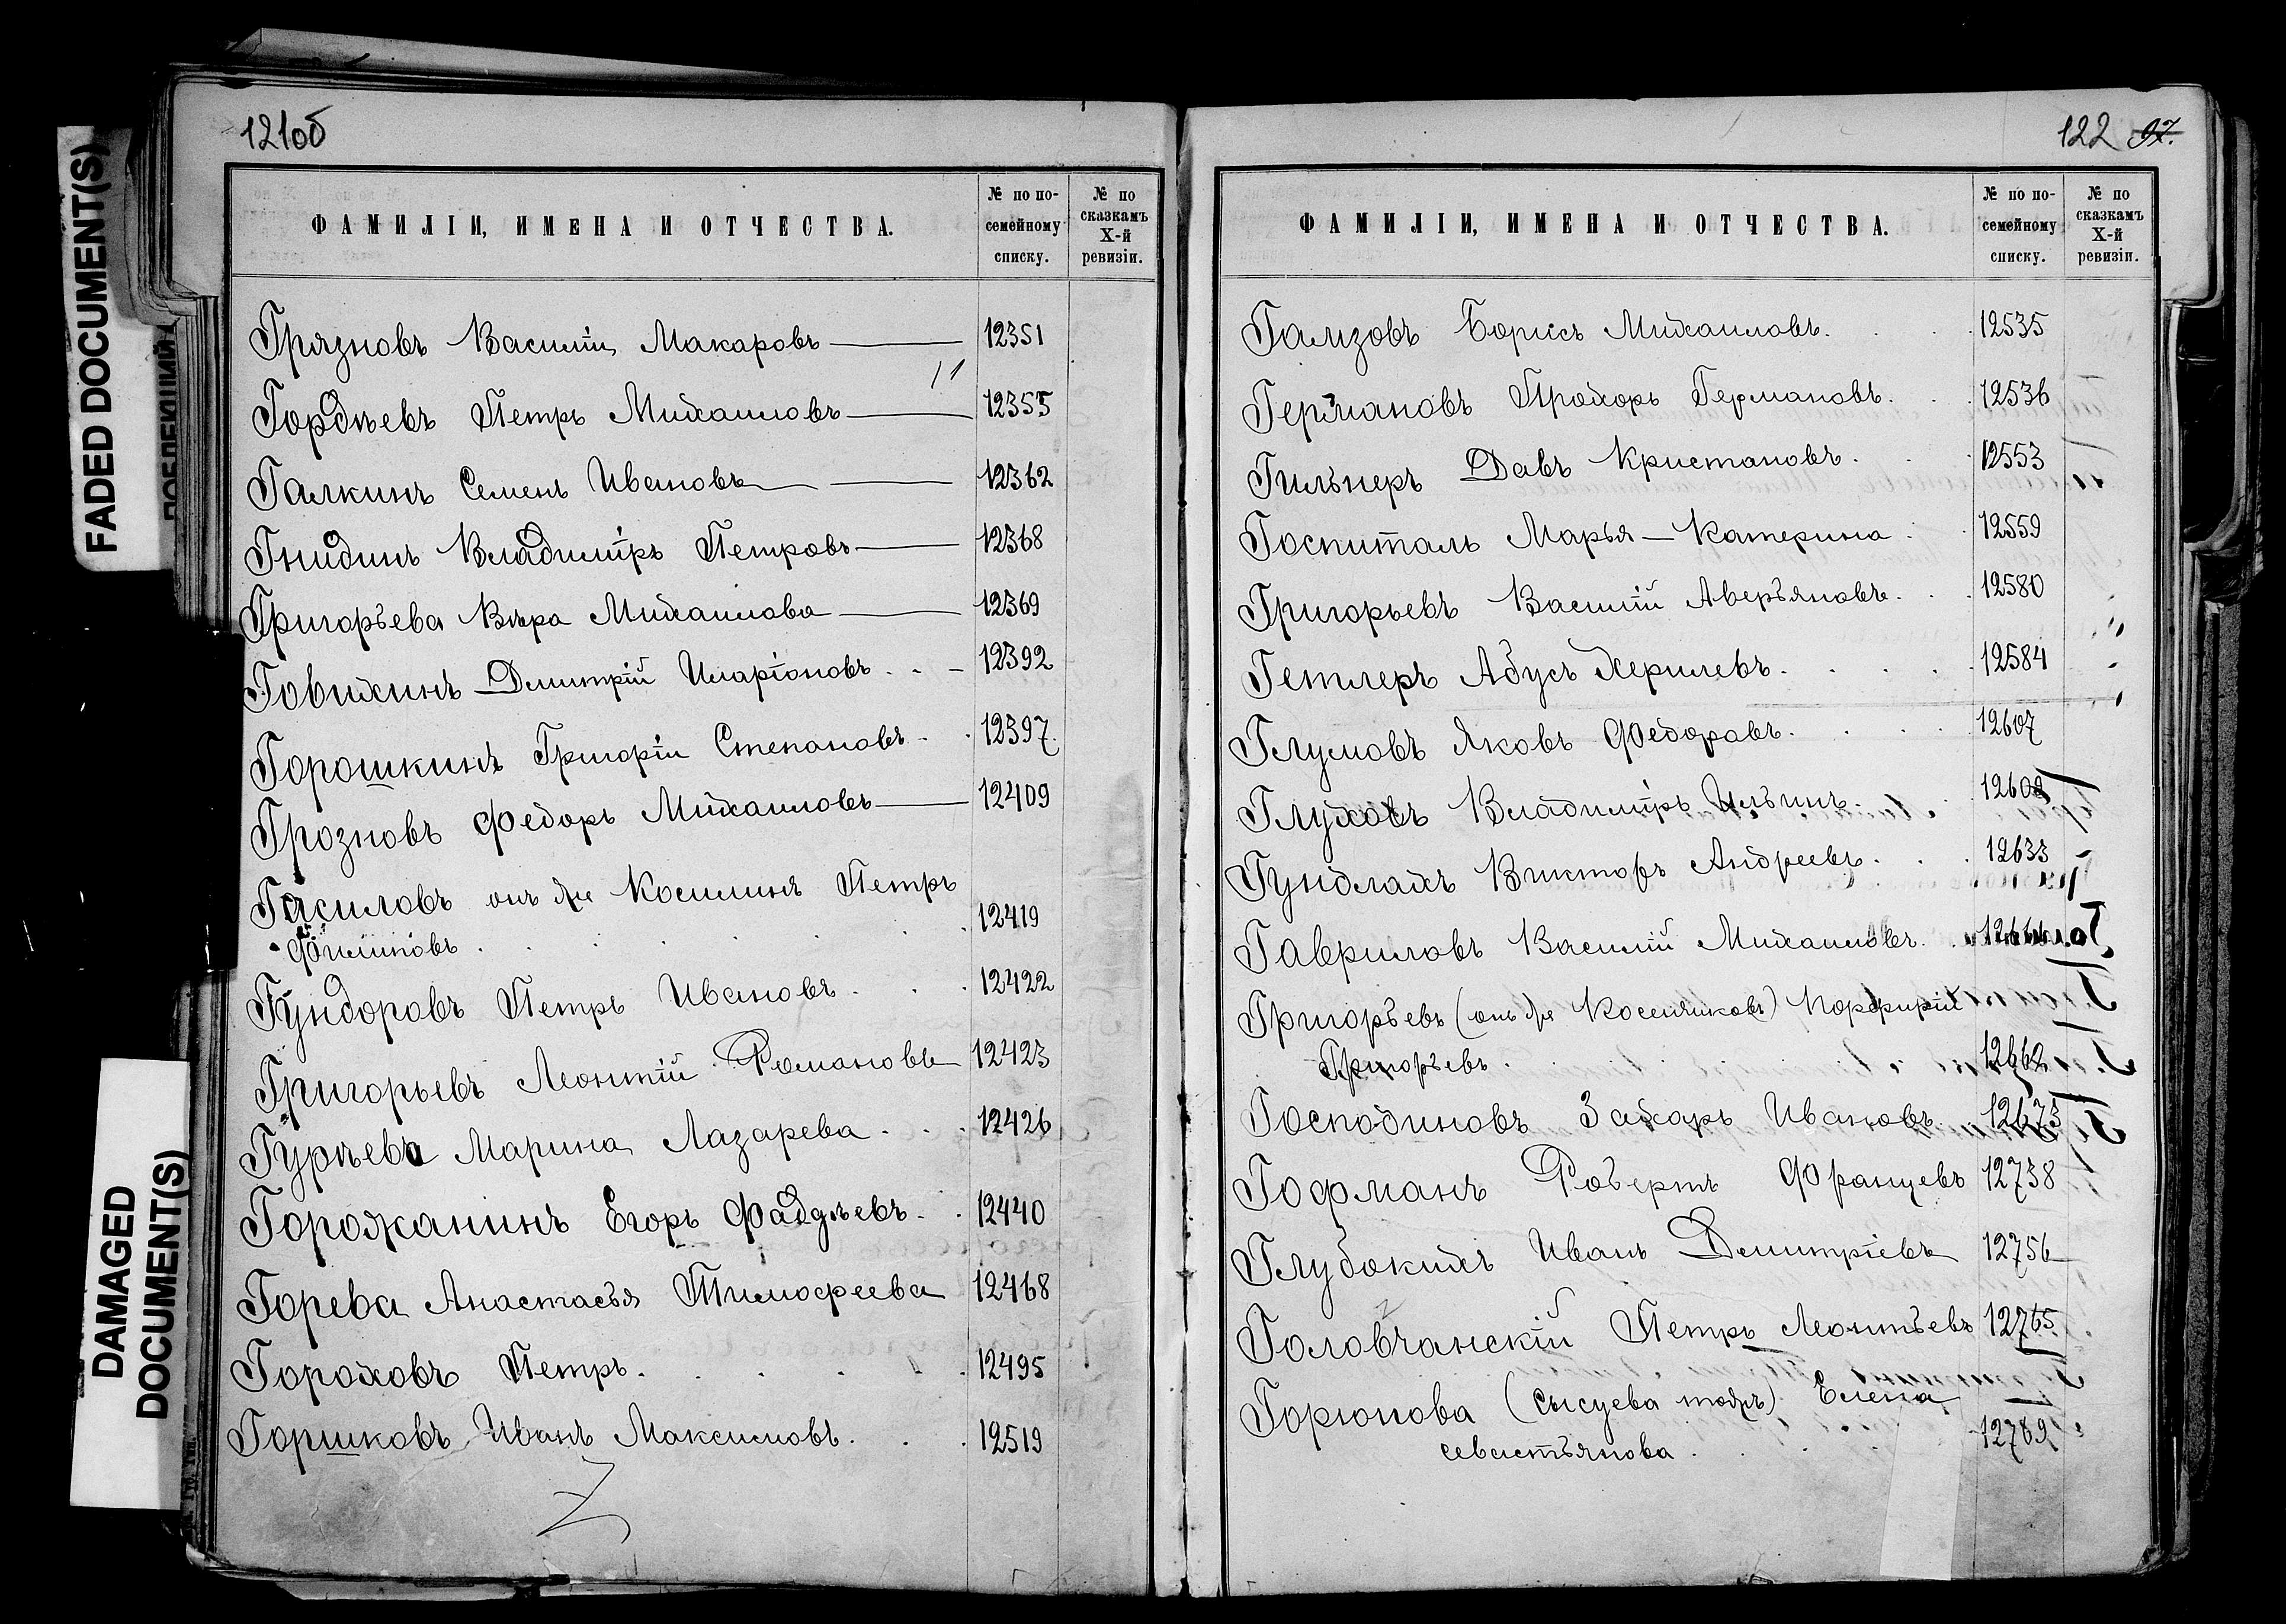 FADED DOCUMENT(S)
DAMAGED
DOCUMENT(S)
121об
ФАМИЛІИ, ИМЕНА И ОТЧЕСТВА.
№ по по-
семейному
списку.
№ по
сказкамъ
X-й
ревизіи.
Грязновъ Василій Макаровъ 12351
Гордѣевъ Петръ Михаиловъ 12355
Галкинъ Семенъ Ивановъ 12362
Гнидинъ Владиміръ Петровъ 12368
Григорьева Вѣра Михаилова 12369
Говихинъ Дмитрій Иларіоновъ 12392
Горошкинъ Григорій Степановъ 12397.
Грозновъ Федоръ Михаиловъ 12409
Гасиловъ онъ же Косилинъ Петръ
Филиповъ 12419
Гундоровъ Петръ Ивановъ 12422
Григорьевъ Леонтій Романовъ 12423
Гурѣева Марина Лазарева 12426
Горожанинъ Егоръ Фаддѣевъ 12440
Горева Анастасья Тимофеева 12468
Гороховъ Петръ 12495
Горшковъ Иванъ Максимовъ 12519
122 97.
ФАМИЛІИ, ИМЕНА И ОТЧЕСТВА.
№ по по-
семейному
списку.
№ по
сказкамъ
X-й
ревизіи.
Гамзовъ Борисъ Михаиловъ. 12535
Германовъ Прохоръ Германовъ. 12536
Гильнеръ Давъ Кристановъ. 12553
Госпиталь Марья-Катерина 12559
Григорьевъ Василій Аверьяновъ. 12580
Гетлеръ Абусъ Херилевъ. 12584
Глумовъ Яковъ Федоровъ. 12607
Глуховъ Владиміръ Ильинъ. 12608
Гундлахъ Викторъ Андреевъ. 12633
Гавриловъ Василій Михаиловъ. 12661
Григорьевъ (онъ же Косенчиковъ) Порфирій
Григорьевъ. 12662
Господиновъ Захаръ Ивановъ. 12673
Гофманъ Робертъ Францевъ 12738
Глубокихъ Иванъ Дмитріевъ 12756
Головчанскій Петръ Леонтьевъ 12765
Горюнова (Сысуева тожъ) Елена
Севастьянова 12789